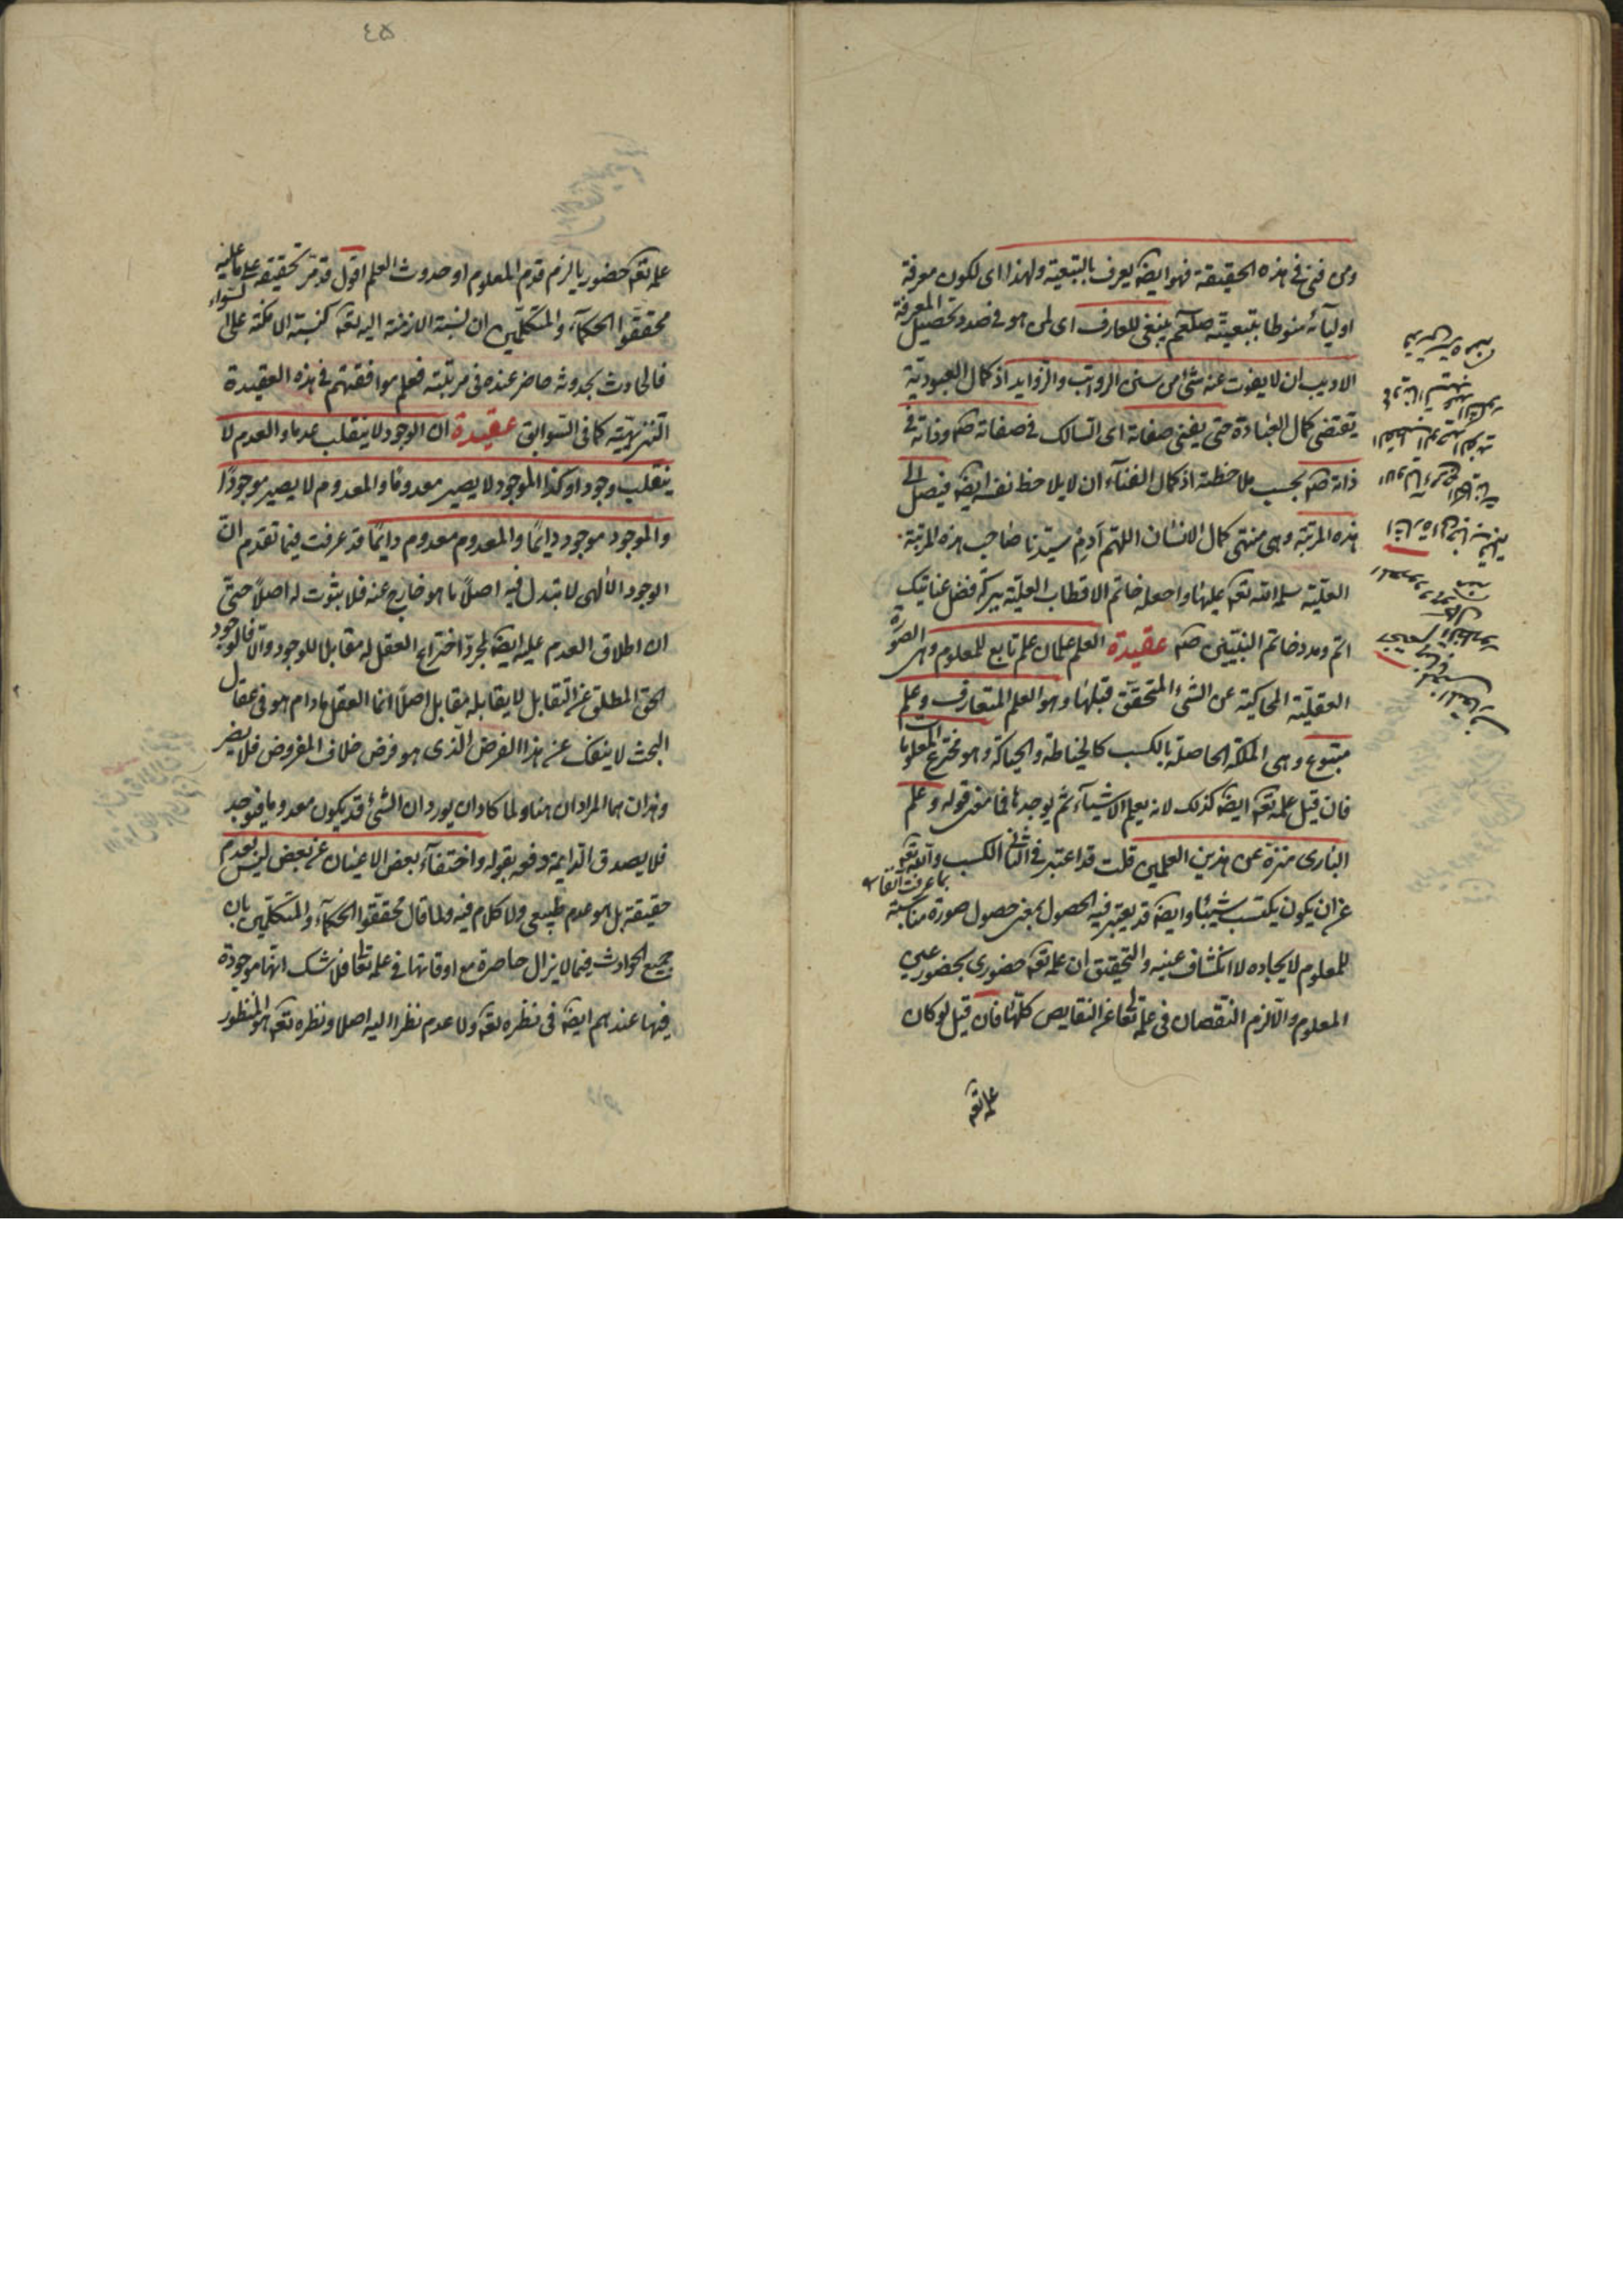 ومن فنى فى هذه الحقيقة فهو ايضا يعرف بالتبعية ولهذا اى لكون معرفة
اوليائه منوطا بتبعيته صلعم ينبغى للعارف اى لمن هو فى صدد تحصيل المعرفة
الاديب ان لا يفوت عنه شئ من سنن الرواتب والزوايد اذ كمال العبودية
يقتضى كمال العبادة حتى يفنى صفاته اى السالك فى صفاته صم وذاته فى
ذاته صم بحسب ملاحظته اذ كمال الفناء ان لا يلاحظ نفسه ايضا فيصل الى
هذه المرتبة وهى منتهى كمال الانسان اللهم آدم سيدنا صاحب هذه المرتبة
العلية سلمه الله تعه عليها واجعله خاتم الاقطاب العلية ببركة فضل عنايتك
اتم ومدد خاتم النبيين صم عقيدة العلم علمان علم تابع للمعلوم وهى الصورة
العقلية المحاكية عن الشئ المتحقق قبلها وهو العلم المتعارف وعلم
متبوع وهى الملكة الحاصلة بالكسب كالخياطة والحياكة وهو مخترع المعلومات
فان قيل علمه تعه ايضا كذلك لانه يعلم الاشياء ثم يوجدها فما معنى قوله وعلم
البارى منزه عن هذين العلمين قلت قد اعتبر فى الثانى الكسب والله تعه
عز ان يكون يكتسب شيئا وايضا قد يعتبر فيه الحصول بمعنى حصول صورة مناسبة
بما عرفت آنفا
للمعلوم لايجاده لا انكشاف عينيه والتحقيق ان علمه تعه حضورى بحضور عين
المعلوم والا لزم النقصان فى علمه تعا عن النقايص كلها فان قيل لو كان
علمه تعه
٤٥
علمه تعه حضوريا لزم قدم المعلوم او حدوث العلم اقول قد مر تحقيقه على ما عليه
محققوا الحكماء والمتكلمين ان نسبة الازمنة اليه تعه كنسبة الامكنة على السواء
فالحادث بحدوثه حاضر عنده فى مرتبته فعلم موافقتهم فى هذه العقيدة
التنزيهية كما فى السوابق عقيدة ان الوجود لا ينقلب عدما والعدم لا
ينقلب وجودا وكذا الموجود لا يصير معدوما والمعدوم لا يصير موجودا
والموجود موجود دايما والمعدوم معدوم دايما قد عرفت فيما تقدم ان
الوجود الالهى لا تبدل فيه اصلا ما هو خارج عنه فلا ثبوت له اصلا حتى
ان اطلاق العدم عليه ايضا لمجرد اختراع العقل له مقابلا للوجود والا فالوجود
الحق المطلق عن التقابل لا يقابله مقابل اصلا انما العقل مادام هو فى عقال
البحث لا ينفك عن هذا الفرض الذى هو فرض خلاف المفروض فلا يضر
وهذان هما المرادان هنا ولما كاد ان يورد ان الشئ قد يكون معدوما فيوجد
فلا يصدق الدايمة دفعه بقوله واختفاء بعض الاعيان عن بعض ليس بعدم
حقيقة بل هو عدم طبيعى ولا كلام فيه ولما قال محققوا الحكماء والمتكلمين بان
جميع الحوادث فيما لا يزال حاضرة مع اوقاتها فى علمه تعا فلا شك انها موجودة
فيها عندهم ايضا فى نظره تعه ولا عدم نظرا اليه اصلا ونظره تعه هو المنظور